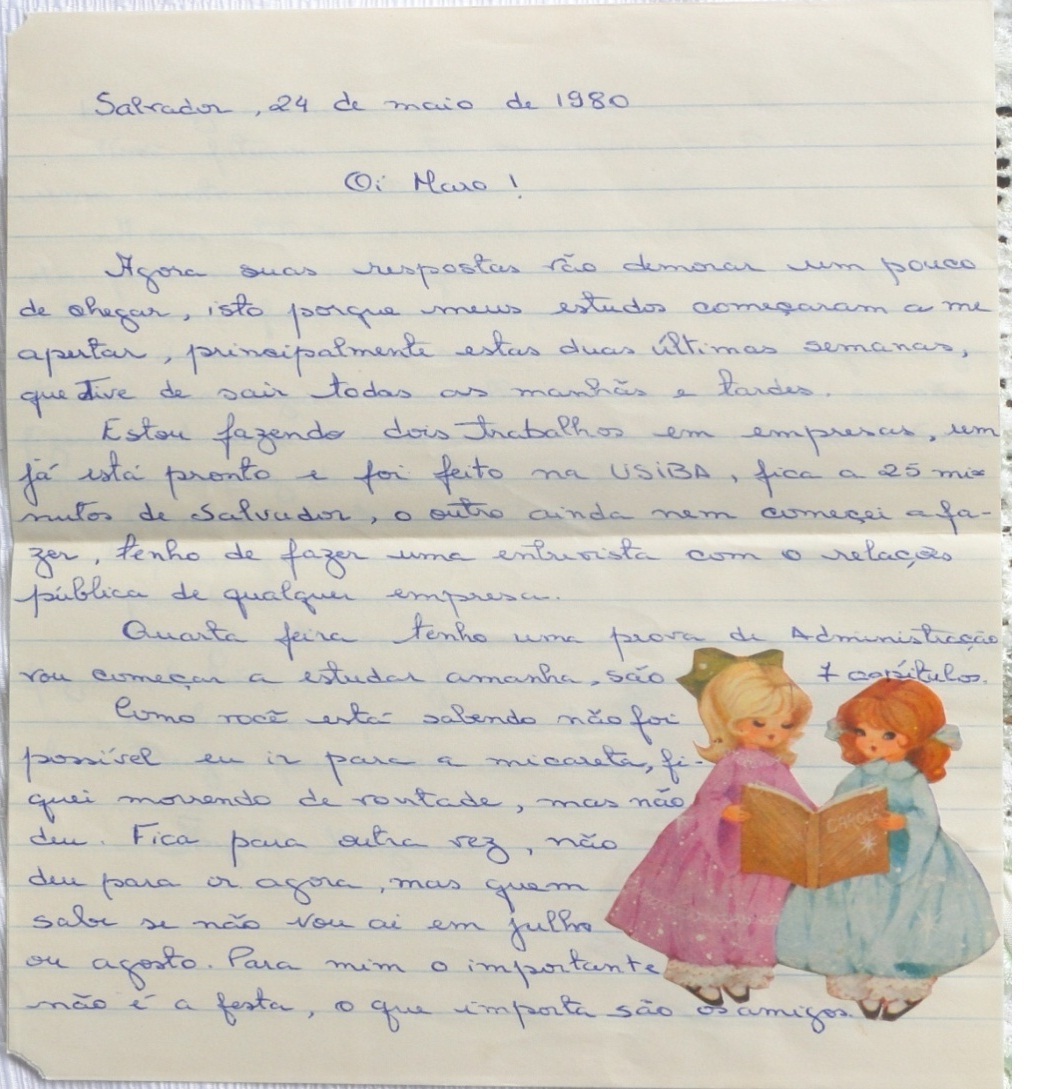 Salvador, 24 de maio de 1980
Oi Maro!
Agora suas respostas vão demorar um pouco
de chegar, isto porque meus estudos começaram a me
apertar, principalmente estas duas últimas semanas,
que tive de sair todas as manhãs e tardes.
Estou fazendo dois trabalhos em empresas, um
já está pronto e foi feito na USIBA, fica a 25 mi-
nutos de Salvador, o outro ainda nem começei a fa-
zer, tenho de fazer uma entrevista com o relações
pública de qualquer empresa.
Quarta feira tenho uma prova de Administração
vou começar a estudar amanha, são 7 capítulos.
Como você está sabendo não foi
possível eu ir para a micareta, fi-
quei morrendo de vontade, mas não
deu. Fica para outra vez, não
deu para ir agora, mas quem
sabe se não vou ai em julho
ou agosto. Para mim o importante
não é a festa, o que importa são os amigos.
CAROLS